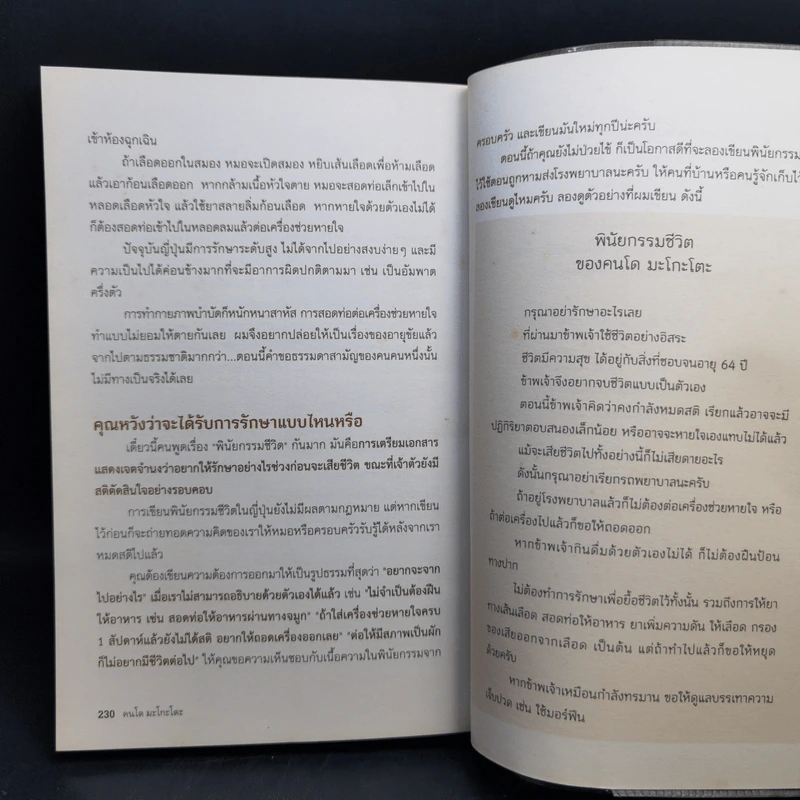 เข้าห้องฉุกเฉิน
ถ้าเลือดออกในสมอง หมอจะเปิดสมอง หยิบเส้นเลือดเพื่อห้ามเลือด
แล้วเอาก้อนเลือดออก หากกล้ามเนื้อหัวใจตาย หมอจะสอดท่อเล็กเข้าไปใน
หลอดเลือดหัวใจ แล้วใช้ยาสลายลิ่มก้อนเลือด หากหายใจด้วยตัวเองไม่ได้
ก็ต้องสอดท่อเข้าไปในหลอดลมแล้วต่อเครื่องช่วยหายใจ
ปัจจุบันญี่ปุ่นมีการรักษาระดับสูง ไม่ได้จากไปอย่างสงบง่ายๆ และมี
ความเป็นไปได้ค่อนข้างมากที่จะมีอาการผิดปกติตามมา เช่น เป็นอัมพาต
ครึ่งตัว
การทำกายภาพบำบัดก็หนักหนาสาหัส การสอดท่อต่อเครื่องช่วยหายใจ
ทำแบบไม่ยอมให้ตายกันเลย ผมจึงอยากปล่อยให้เป็นเรื่องของอายุขัยแล้ว
จากไปตามธรรมชาติมากกว่า...ตอนนี้คำขอธรรมดาสามัญของคนคนหนึ่งนั้น
ไม่มีทางเป็นจริงได้เลย
คุณหวังว่าจะได้รับการรักษาแบบไหนหรือ
เดี๋ยวนี้คนพูดเรื่อง "พินัยกรรมชีวิต" กันมาก มันคือการเตรียมเอกสาร
แสดงเจตจำนงว่าอยากให้รักษาอย่างไรช่วงก่อนจะเสียชีวิต ขณะที่เจ้าตัวยังมี
สติตัดสินใจอย่างรอบคอบ
การเขียนพินัยกรรมชีวิตในญี่ปุ่นยังไม่มีผลตามกฎหมาย แต่หากเขียน
ไว้ก่อนก็จะถ่ายทอดความคิดของเราให้หมอหรือครอบครัวรับรู้ได้หลังจากเรา
หมดสติไปแล้ว
คุณต้องเขียนความต้องการออกมาให้เป็นรูปธรรมที่สุดว่า "อยากจะจาก
ไปอย่างไร" เมื่อเราไม่สามารถอธิบายด้วยตัวเองได้แล้ว เช่น "ไม่จำเป็นต้องฝืน
ให้อาหาร เช่น สอดท่อให้อาหารผ่านทางจมูก" "ถ้าใส่เครื่องช่วยหายใจครบ
1 สัปดาห์แล้วยังไม่ได้สติ อยากให้ถอดเครื่องออกเลย" "ต่อให้มีสภาพเป็นผัก
ก็ไม่อยากมีชีวิตต่อไป" ให้คุณขอความเห็นชอบกับเนื้อความในพินัยกรรมจาก
230 คนโด มะโกะโตะ
ครอบครัว และเขียนมันใหม่ทุกปีน่ะครับ
ตอนนี้ถ้าคุณยังไม่ป่วยไข้ ก็เป็นโอกาสดีที่จะลองเขียนพินัยกรรม
ไว้ใช้ตอนถูกหามส่งโรงพยาบาลนะครับ ให้คนที่บ้านหรือคนรู้จักเก็บไว้
ลองเขียนดูไหมครับ ลองดูตัวอย่างที่ผมเขียน ดังนี้
พินัยกรรมชีวิต
ของคนโด มะโกะโตะ
กรุณาอย่ารักษาอะไรเลย
ที่ผ่านมาข้าพเจ้าใช้ชีวิตอย่างอิสระ
ชีวิตมีความสุข ได้อยู่กับสิ่งที่ชอบจนอายุ 64 ปี
ข้าพเจ้าจึงอยากจบชีวิตแบบเป็นตัวเอง
ตอนนี้ข้าพเจ้าคิดว่าคงกำลังหมดสติ เรียกแล้วอาจจะมี
ปฏิกิริยาตอบสนองเล็กน้อย หรืออาจจะหายใจเองแทบไม่ได้แล้ว
แม้จะเสียชีวิตไปทั้งอย่างนี้ก็ไม่เสียดายอะไร
ดังนั้นกรุณาอย่าเรียกรถพยาบาลนะครับ
ถ้าอยู่โรงพยาบาลแล้วก็ไม่ต้องต่อเครื่องช่วยหายใจ หรือ
ถ้าต่อเครื่องไปแล้วก็ขอให้ถอดออก
หากข้าพเจ้ากินดื่มด้วยตัวเองไม่ได้ ก็ไม่ต้องฝืนป้อน
ทางปาก
ไม่ต้องทำการรักษาเพื่อยื้อชีวิตไว้ทั้งนั้น รวมถึงการให้ยา
ทางเส้นเลือด สอดท่อให้อาหาร ยาเพิ่มความดัน ให้เลือด กรอง
ของเสียออกจากเลือด เป็นต้น แต่ถ้าทำไปแล้วก็ขอให้หยุด
ด้วยครับ
หากข้าพเจ้าเหมือนกำลังทรมาน ขอให้ดูแลบรรเทาความ
เจ็บปวด เช่น ใช้มอร์ฟีน